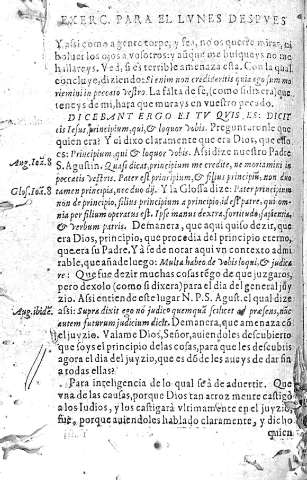 EXERC. PARA EL LVNES DESPVES
Y assi como a gente torpe, y fea, no os querre mirar, ni
boluer los ojos a vosotros; y aunque me busqueys no me
hallareys. Ved, si es terrible amenaza esta. Con la qual
concluye, diziendo: Si enim non credideritis quia ego sum mo
riemini in peccato vestro. La falta de fe, (como si dixera) que
teneys de mi, hara que morays en vuestro pecado.
DICEBANT ERGO EI TV QVIS ES: DICIT
eis Iesus, principium, qui, & loquor vobis. Preguntaronle que
quien era? Y el dixo claramente que era Dios, que esso
es: Principium, qui & loquor vobis. Assi dize nuestro Padre
Aug. Ioã. 8
S. Agustin. Quasi dicat, principium me credite, ne moriamini in
peccatis vestris. Pater est principiũ, & filius principiũ, non duo
Glos. Ioã. 8
tamen principia, nec duo dij. Y la Glossa dize: Pater principium
non de principio, filius principium a principio, id est patre, qui om
nia per filium operatus est. Ipse manus dextra, fortitudo, sapiẽtia,
& verbum patris. Demanera, que aqui quiso dezir, que
era Dios, principio, que procedia del principio eterno,
que era su Padre. Y a se de notar aqui vn contexto admi
rable, que añade luego: Multa habeo de vobis loqui, & iudica
re: Que fue dezir muchas cosas tẽgo de que juzgaros,
pero dexolo (como si dixera) para el dia del general juy
zio. Assi entiende este lugar N. P. S. Agust. el qual dize
Aug. ibidẽ.
assi: Supra dixit ego nõ iudico quemquã scilicet ad præsens, nũc
autem futurum judicium dicit. Demanera, que amenaza cõ
el juyzio. Valame Dios, Señor, auiendoles descubierto
que soys el principio de las cosas, para que les descubris
agora el dia del juyzio, que es dõde les aueys de dar fin
a todas ellas?
Para inteligencia de lo qual se a de aduertir. Que
vna de las causas, porque Dios tan atroz mente castigó
a los Iudios, y los castigará vltimamente en el juyzio,
fue, porque auiendoles hablado claramente, y dicho
quien